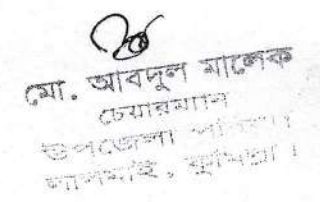 মো. আবদুল মালেক
চেয়ারম্যান
উপজেলা পরিষদ।
লালমাই, কুমিল্লা।